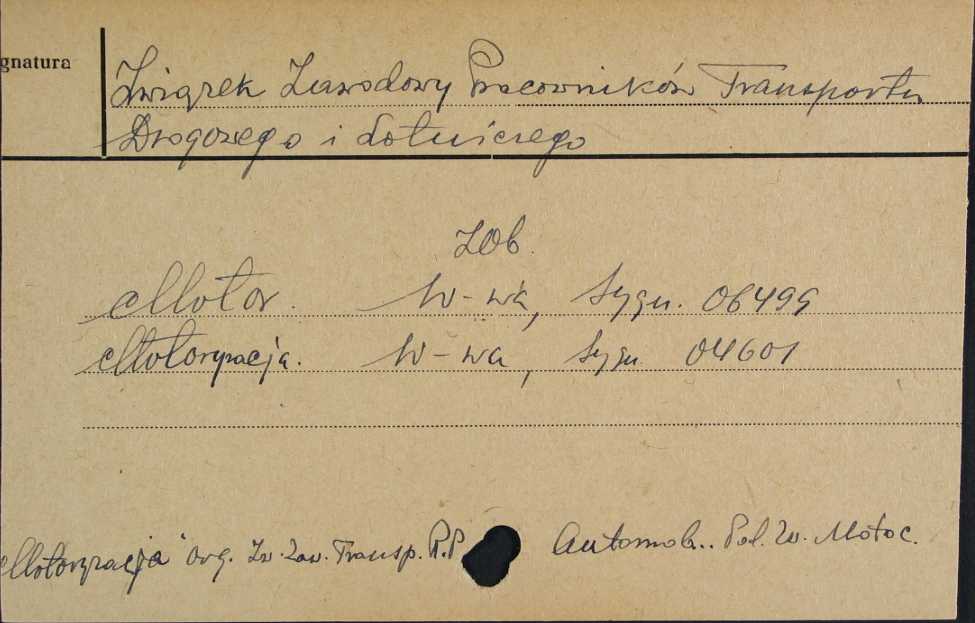 gnatura
Związek Zawodowy Pracowników Transportu
Drogowego i Lotniczego
zob.
Motor. W-wa, Sygn. 06499
Motoryzacja. W-wa, Sygn 04601
Motoryzacja" org. Zw. Zaw. Transp. R.P Automob.. Pol. Zw. Motoc.